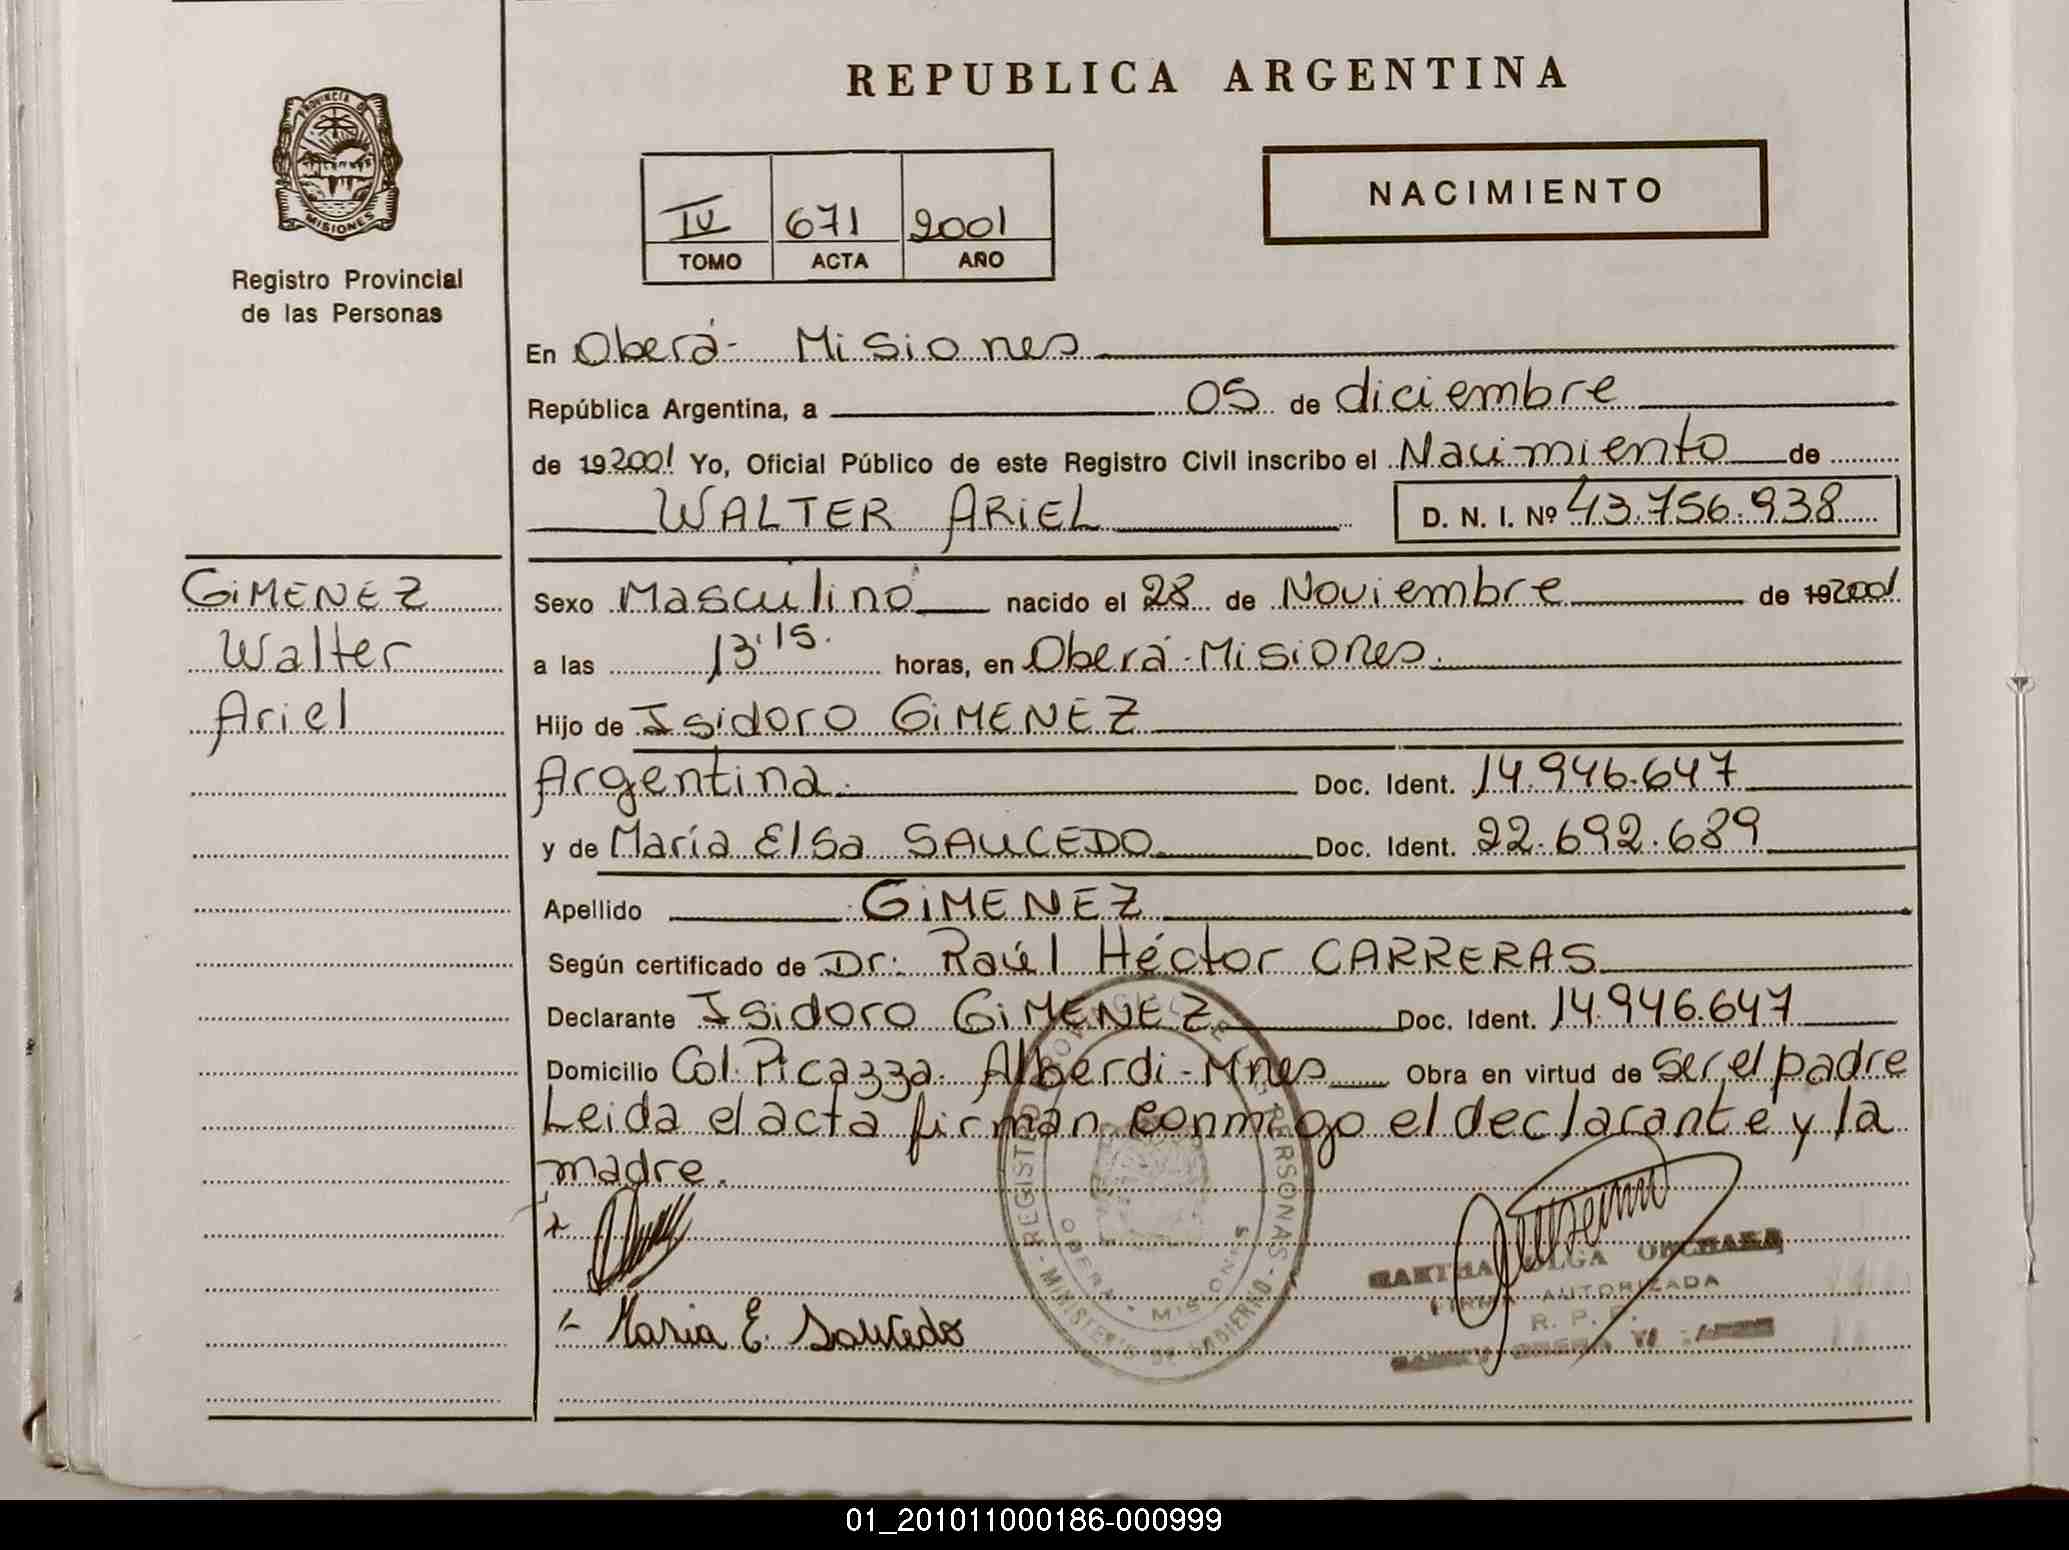 REPUBLICA ARGENTINA
PROVINCIA DE
MISIONES
Registro Provincial
de las Personas
IV 671 2001
TOMO ACTA AÑO
NACIMIENTO
En Oberá - Misiones
República Argentina, a 05 de diciembre
de 19 2001 Yo, Oficial Público de este Registro Civil inscribo el Nacimiento de
WALTER ARIEL D. N. I. Nº 43.756.938
GiMENEZ
Walter
Ariel
Sexo Masculino nacido el 28 de Noviembre de 19 2001
a las 13'15. horas, en Oberá - Misiones.
Hijo de Isidoro GiMENEZ
Argentina. Doc. Ident. 14.946.647
y de María Elsa SAUCEDO Doc. Ident. 22.692.689
Apellido GiMENEZ
Según certificado de Dr. Raúl Héctor CARRERAS
Declarante Isidoro GiMENEZ Doc. Ident. 14.946.647
Domicilio Col. Picazza. Alberdi - Mnes Obra en virtud de ser el padre
Leida el acta firman conmigo el declarante y la
madre.
Maria E. Saucedo
REGISTRO PROVINCIAL DE LAS PERSONAS
OBERA - MISIONES
MINISTERIO DE GOBIERNO
OLGA
FIRMA AUTORIZADA
R. P. P.
01_201011000186-000999